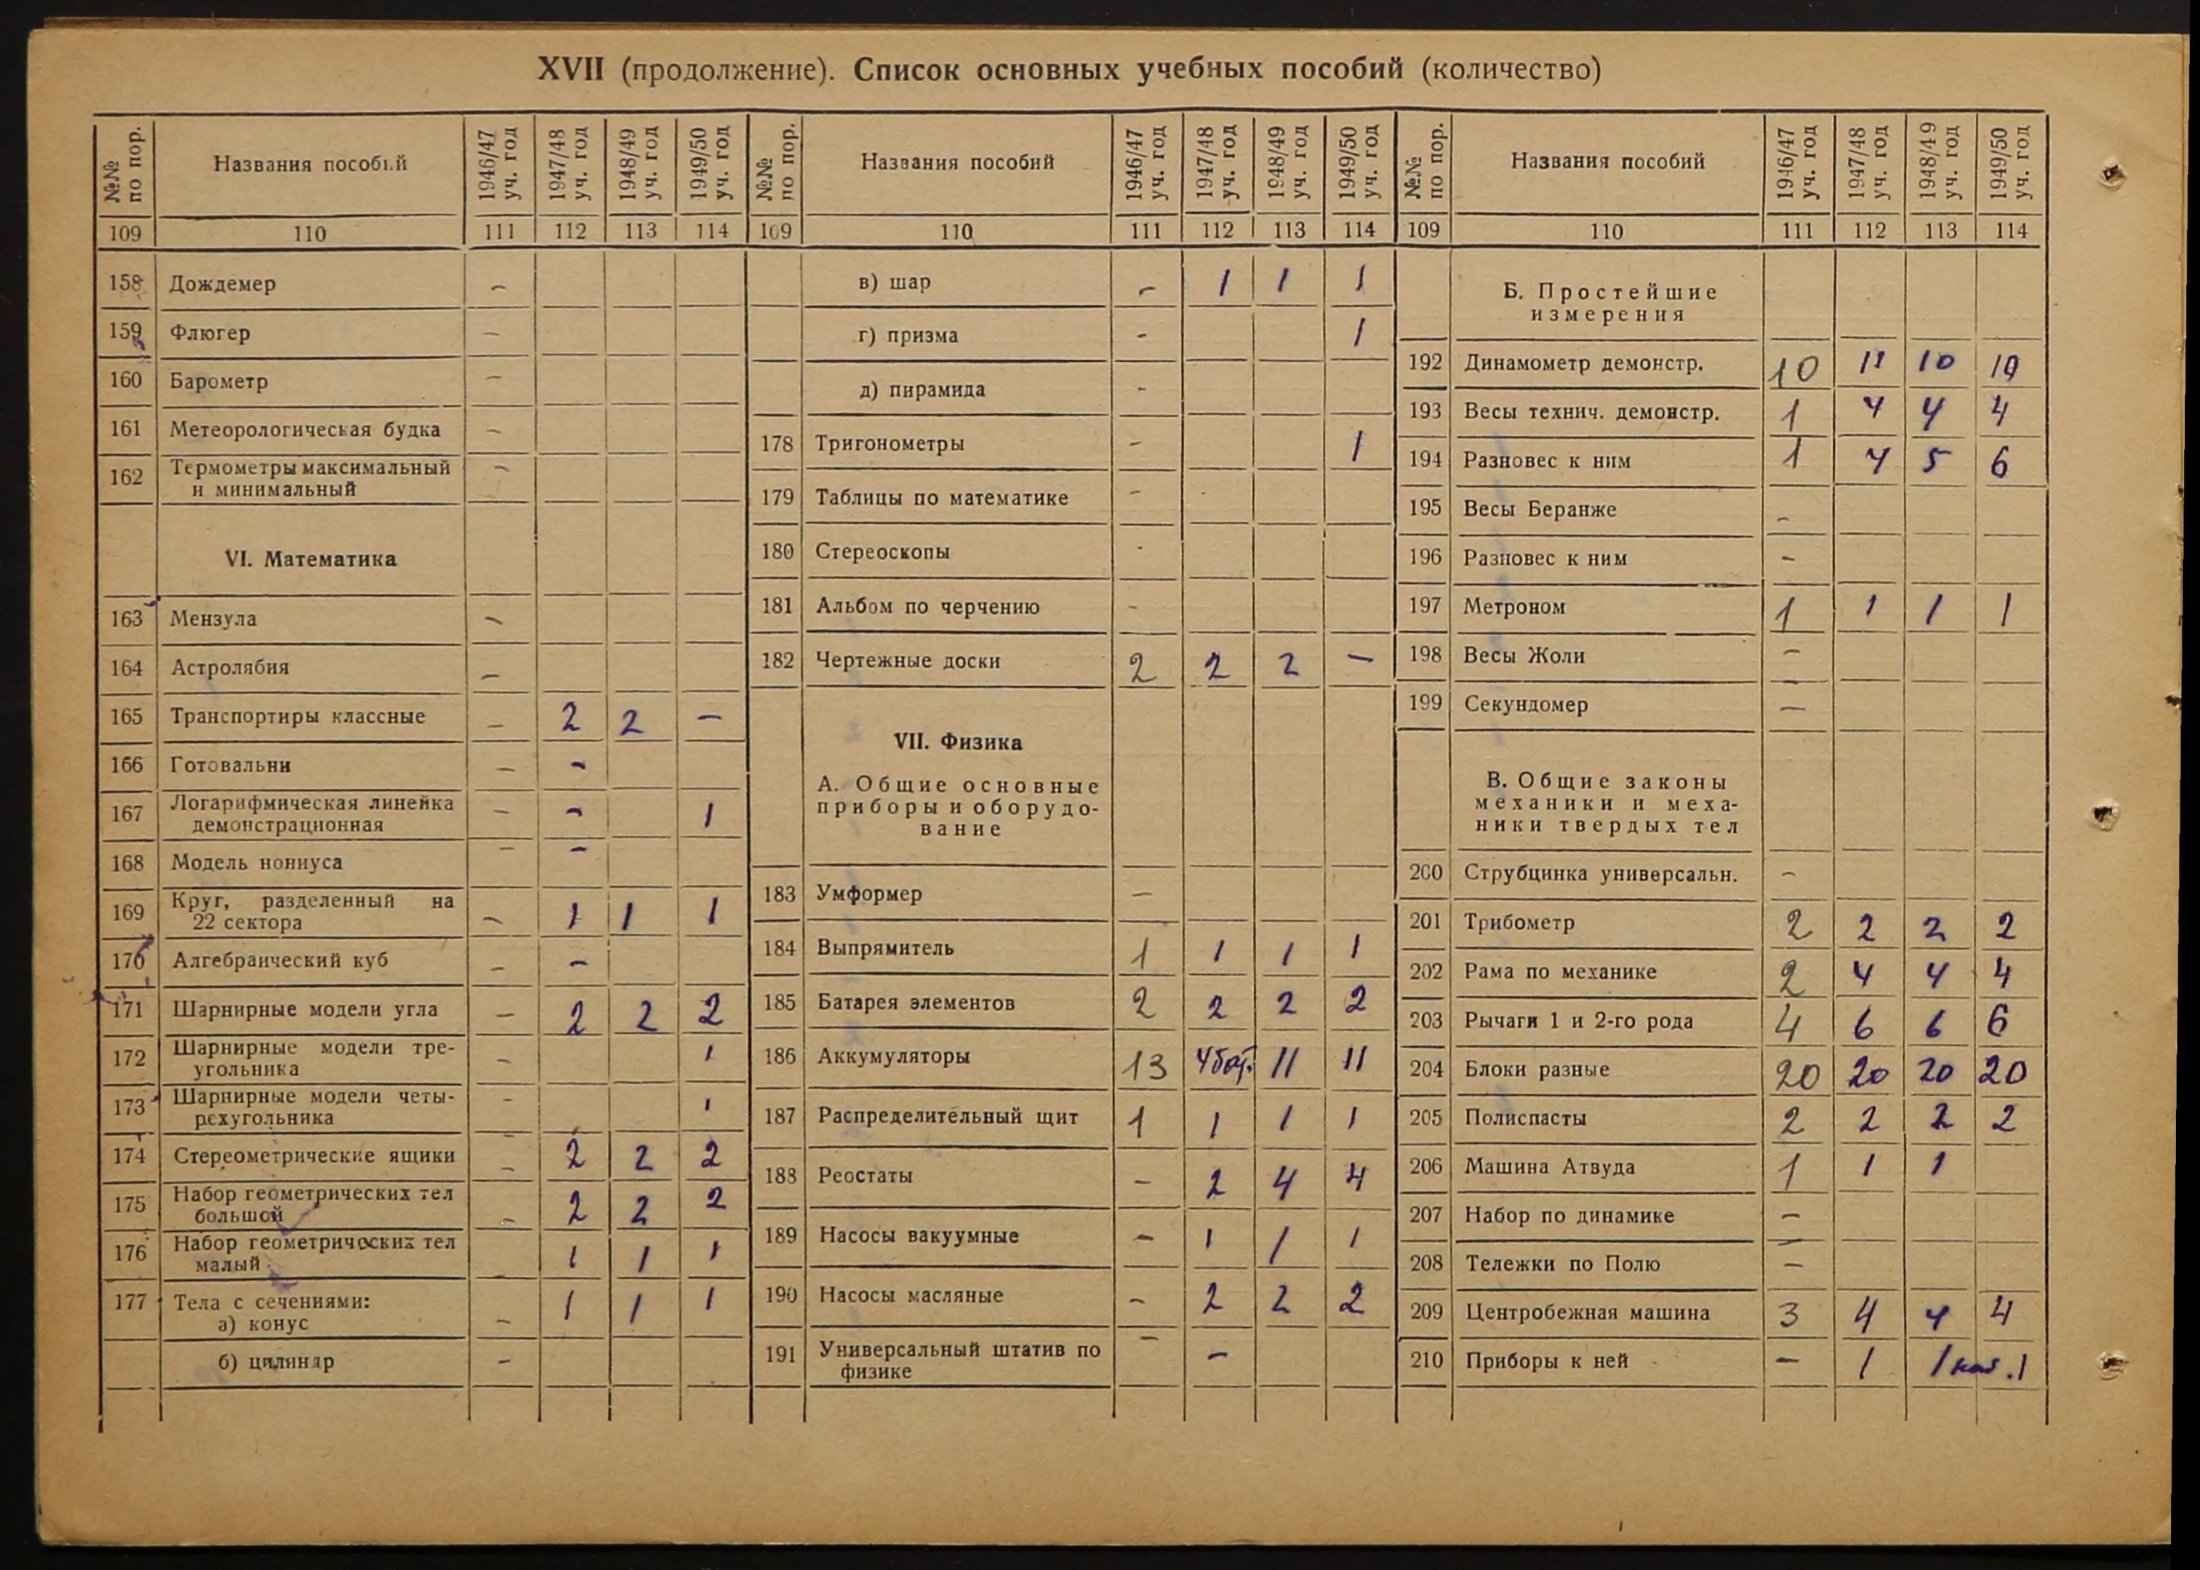 XVII (продолжение). Список основных учебных пособий (количество)
№№ по пор. Названия пособий 1946/47 уч. год 1947/48 уч. год 1948/49 уч. год 1949/50 уч. год
109 110 111 112 113 114
158 Дождемер –
159 Флюгер –
160 Барометр –
161 Метеорологическая будка –
162 Термометры максимальный –
и минимальный
VI. Математика
163 Мензула –
164 Астролябия –
165 Транспортиры классные – 2 2 –
166 Готовальни – –
167 Логарифмическая линейка – – 1
демонстрационная
168 Модель нониуса – –
169 Круг, разделенный на – 1 1 1
22 сектора
170 Алгебраический куб – –
171 Шарнирные модели угла – 2 2 2
172 Шарнирные модели тре- – 1
угольника
173 Шарнирные модели четы- – 1
рехугольника
174 Стереометрические ящики – 2 2 2
175 Набор геометрических тел – 2 2 2
большой
176 Набор геометрических тел – 1 1 1
малый
177 Тела с сечениями:
а) конус – 1 1 1
б) цилиндр –
№№ по пор. Названия пособий 1946/47 уч. год 1947/48 уч. год 1948/49 уч. год 1949/50 уч. год
109 110 111 112 113 114
в) шар – 1 1 1
г) призма – 1
д) пирамида –
178 Тригонометры – 1
179 Таблицы по математике –
180 Стереоскопы -
181 Альбом по черчению –
182 Чертежные доски 2 2 2 –
VII. Физика
А. Общие основные
приборы и оборудо-
вание
183 Умформер –
184 Выпрямитель 1 1 1 1
185 Батарея элементов 2 2 2 2
186 Аккумуляторы 13 4 бат. 11 11
187 Распределительный щит 1 1 1 1
188 Реостаты – 2 4 4
189 Насосы вакуумные – 1 1 1
190 Насосы масляные – 2 2 2
191 Универсальный штатив по – –
физике
№№ по пор. Названия пособий 1946/47 уч. год 1947/48 уч. год 1948/49 уч. год 1949/50 уч. год
109 110 111 112 113 114
Б. Простейшие
измерения
192 Динамометр демонстр. 10 11 10 10
193 Весы технич. демонстр. 1 4 4 4
194 Разновес к ним 1 4 5 6
195 Весы Беранже –
196 Разновес к ним –
197 Метроном 1 1 1 1
198 Весы Жоли –
199 Секундомер –
В. Общие законы
механики и меха-
ники твердых тел
200 Струбцинка универсальн. –
201 Трибометр 2 2 2 2
202 Рама по механике 2 4 4 4
203 Рычаги 1 и 2-го рода 4 6 6 6
204 Блоки разные 20 20 20 20
205 Полиспасты 2 2 2 2
206 Машина Атвуда 1 1 1
207 Набор по динамике –
208 Тележки по Полю –
209 Центробежная машина 3 4 4 4
210 Приборы к ней – 1 1 1